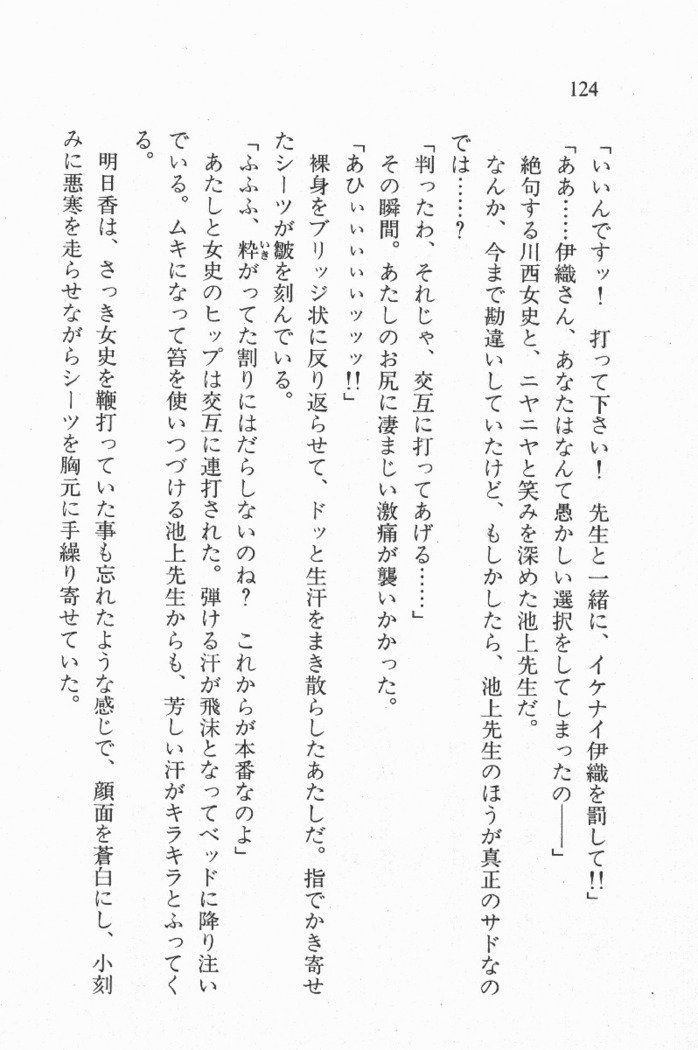 124
「いいんですッ！　打って下さい！　先生と一緒に、イケナイ伊織を罰して!!」
「ああ……伊織さん、あなたはなんて愚かしい選択をしてしまったの――」
　絶句する川西女史と、ニヤニヤと笑みを深めた池上先生だ。
　なんか、今まで勘違いしていたけど、もしかしたら、池上先生のほうが真正のサドなの
では……？
「判ったわ、それじゃ、交互に打ってあげる……」
　その瞬間。あたしのお尻に凄まじい激痛が襲いかかった。
「あひぃぃぃぃぃッッッ!!」
　裸身をブリッジ状に反り返らせて、ドッと生汗をまき散らしたあたしだ。指でかき寄せ
たシーツが皺を刻んでいる。
「ふふふ、粋がってた割りにはだらしないのね？　これからが本番なのよ」
　あたしと女史のヒップは交互に連打された。弾ける汗が飛沫となってベッドに降り注い
でいる。ムキになって笞を使いつづける池上先生からも、芳しい汗がキラキラとふってく
る。
　明日香は、さっき女史を鞭打っていた事も忘れたような感じで、顔面を蒼白にし、小刻
みに悪寒を走らせながらシーツを胸元に手繰り寄せていた。